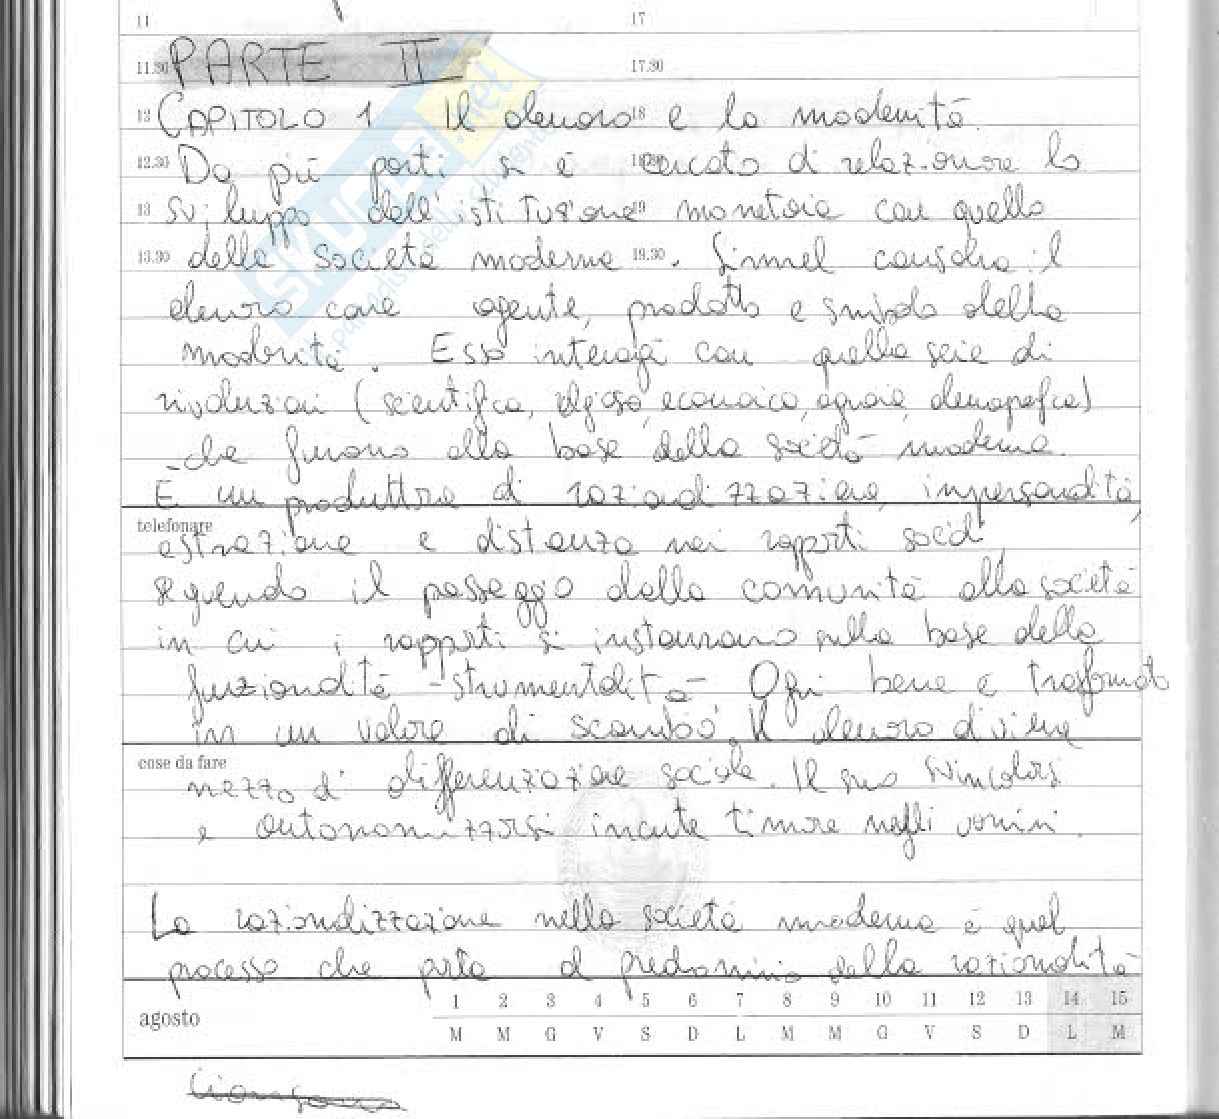 11 17
11.30 PARTE II 17.30
12 CAPITOLO 1 Il denaro 18 e la modernità.
12.30 Da più parti si è 18.30 cercato di relazionare lo
13 sviluppo dell'istituzione 19 monetaria con quello
13.30 della società moderna 19.30 . Simmel considera il
denaro come agente, prodotto e simbolo della
modernità. Esso interagì con quella serie di
rivoluzioni (scientifica, religiosa, economica, agraria, demografica)
che furono alla base della società moderna.
È un produttore di razionalizzazione, impersonalità,
telefonare
astrazione e distanza nei rapporti sociali,
seguendo il passaggio dalla comunità alla società
in cui i rapporti si instaurano sulla base della
funzionalità-strumentalità. Ogni bene è trasformato
in un valore di scambio. Il denaro diviene
cose da fare
mezzo di differenziazione sociale. Il suo svincolarsi
e autonomizzarsi incute timore negli uomini.
La razionalizzazione nella società moderna è quel
processo che porta al predominio della razionalità
agosto 1 2 3 4 5 6 7 8 9 10 11 12 13 14 15
M M G V S D L M M G V S D L M